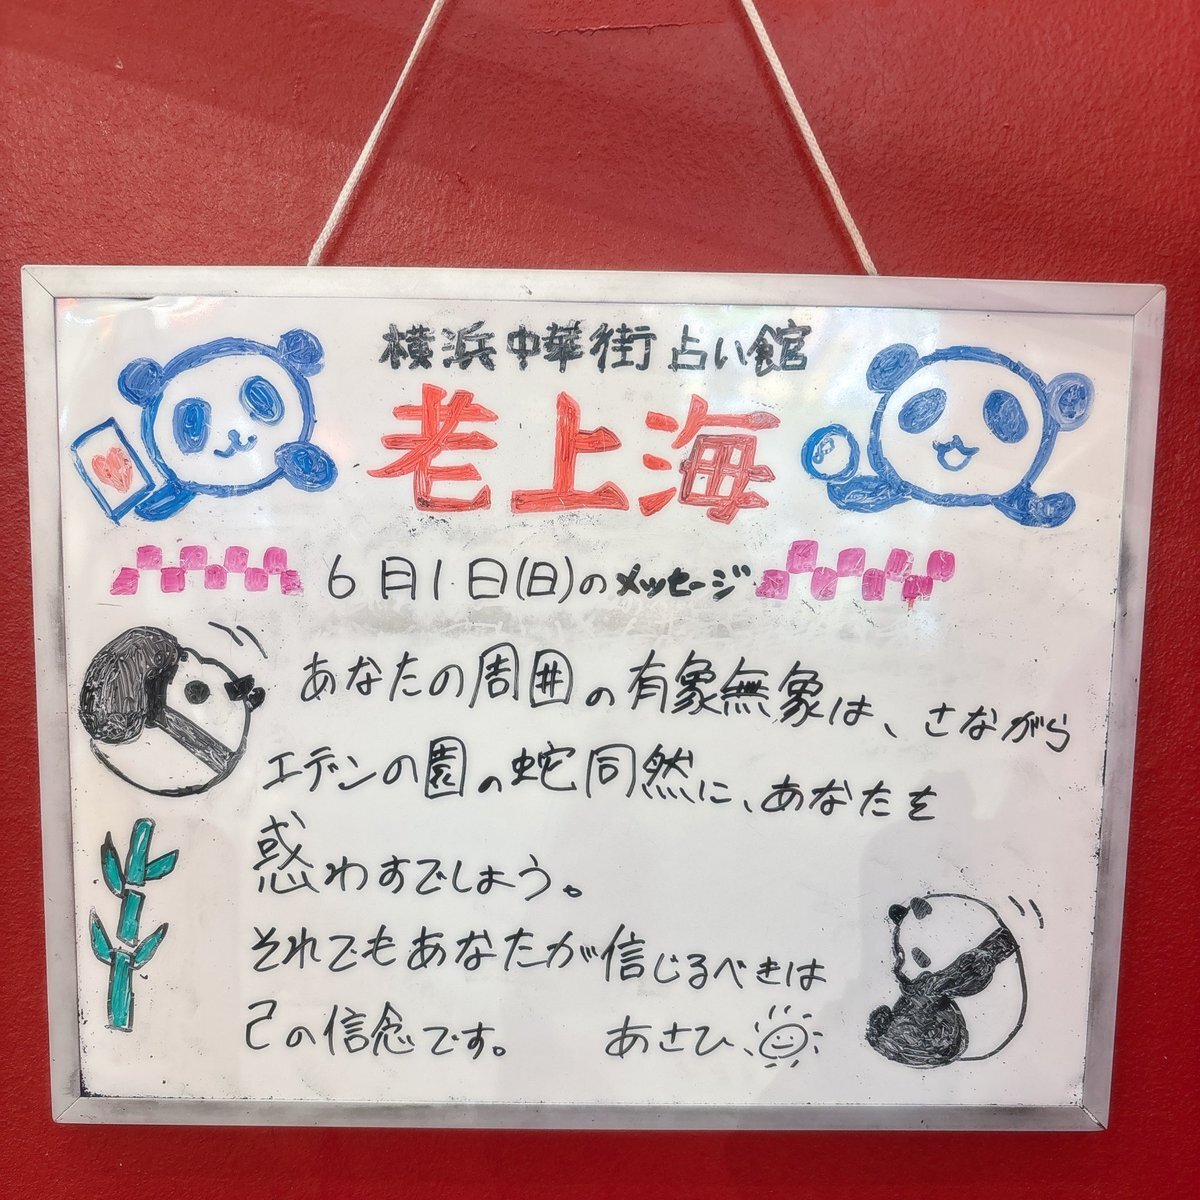 横浜中華街占い館
老上海
6月1日(日)のメッセージ
あなたの周囲の有象無象は、さながら
エデンの園の蛇同然に、あなたを
惑わすでしょう。
それでもあなたが信じるべきは
己の信念です。 あさひ